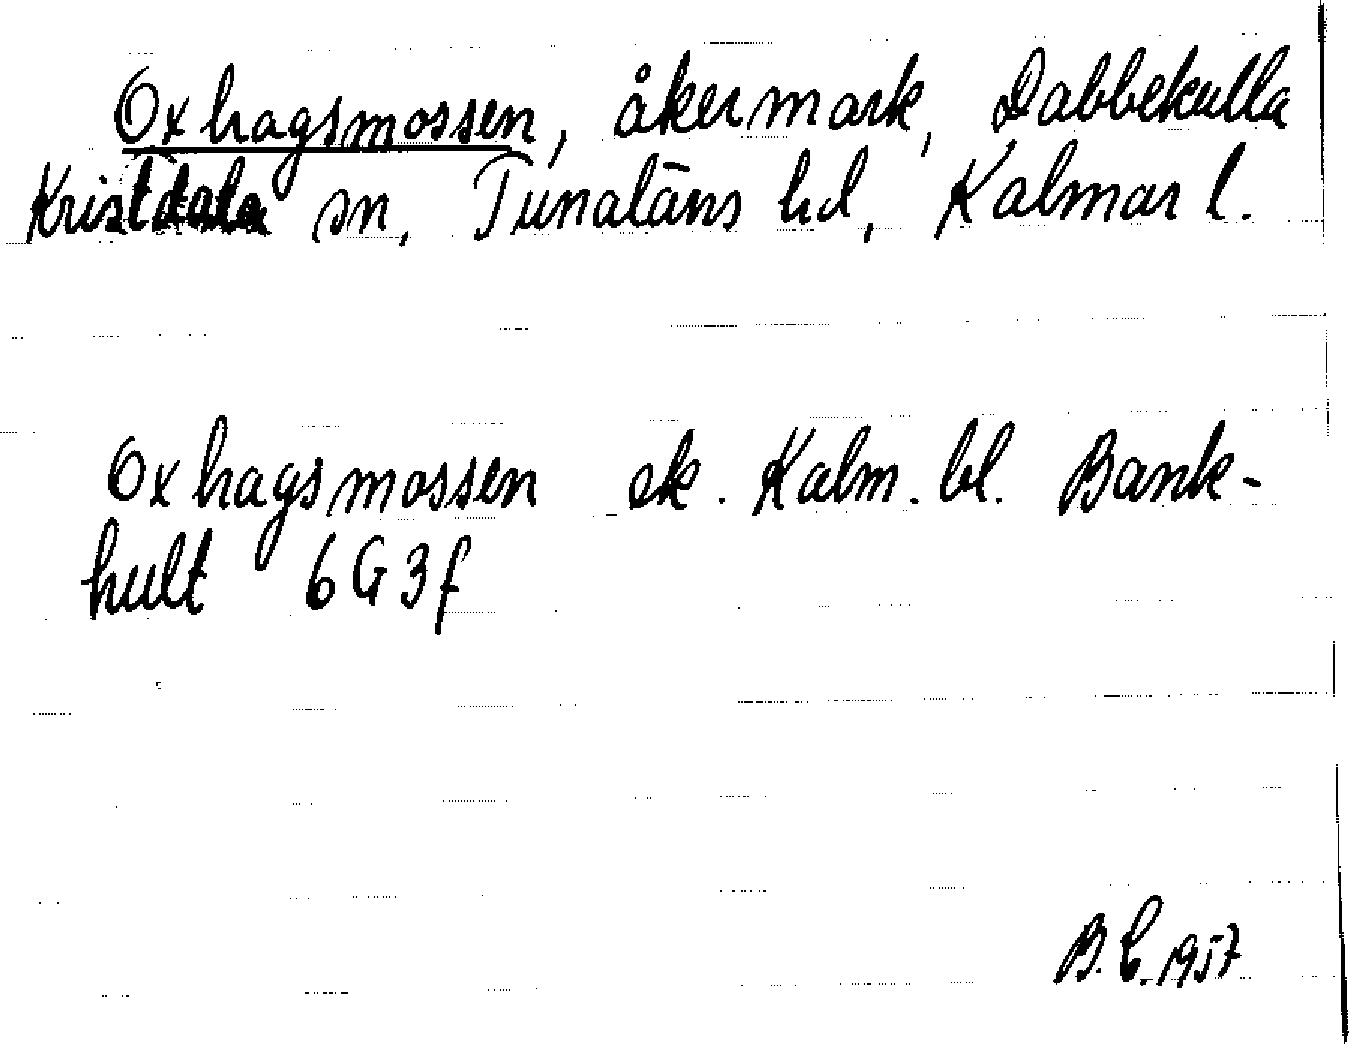 Oxhagsmossen, åkermark, Dabbekulla
Kristdala sn, Tunaläns hd, Kalmar l.
Oxhagsmossen ek. Kalm. bl. Bank-
hult 6G3f
B.C. 1957